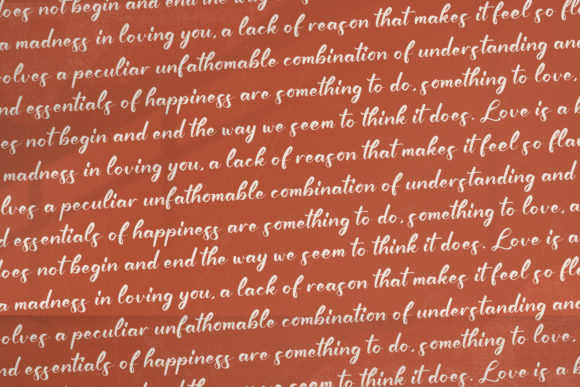 does not begin and end the
a madness in loving you, a lack of reason that makes it feel so fla
olves a peculiar unfathomable combination of understanding and
nd essentials of happiness are something to do, something to love,
es not begin and end the way we seem to think it does. Love is a b
madness in loving you, a lack of reason that makes it feel so flaw
lves a peculiar unfathomable combination of understanding and
d essentials of happiness are something to do, something to love, a
does not begin and end the way we seem to think it does. Love is a
a madness in loving you, a lack of reason that makes it feel so fl
olves a peculiar unfathomable combination of understanding and
nd essentials of happiness are something to do, something to love,
not begin and end the way we seem to think it does. Love is a b